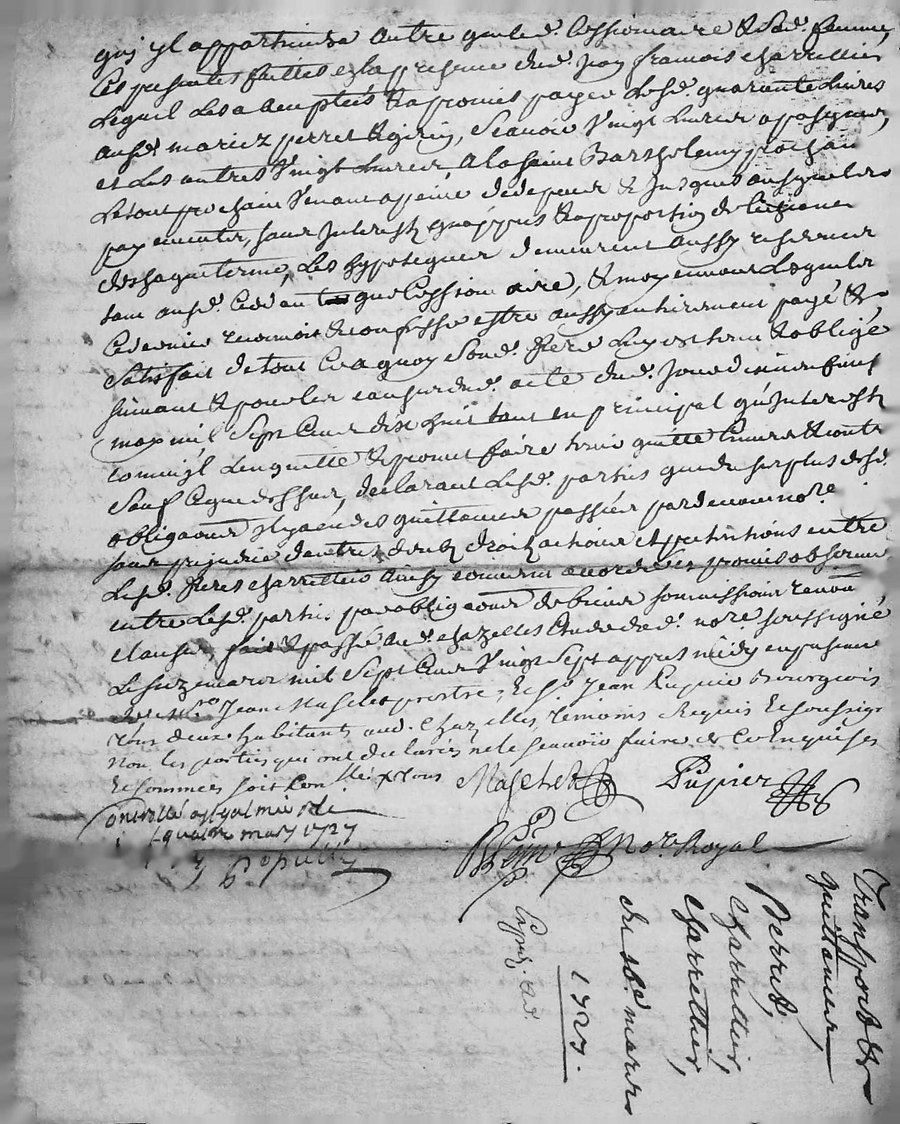 quj yl appartiendra autre que led. Cessionaire & sad. femme,
Ces presentes faittes en la presence dud. jean francois charretier
Lequel Les a acceptées & a promis payer Lesd. quarante Livres
ausd. mariez perret & girin, scavoir Vingt Livres a pasques,
et Les autres Vingt Livres a la saint Barthelemy prochain
Le tout prochain Venant a peine de depens & jusques ausquels
payements, sans Interestz & a proportion de
de chaque terme, Les hypoteques demeurent aussy reservées
tant ausd. Cedant que Cessionaire, & moyennant Lesquels
Ce dernier reconnoit & confesse estre aussy entierement payé &
satisfait de tout Ce a quoy Sond. frere Luy est tenu & obligé
suivant & pour les causes dud. acte dud. jour
may mil Sept Cent dix huit tant en principal qu'Interestz
Comme jl Len quitte & promet faire tenir quitte Envers & contre
Sauf Ce que dessus, declarant Lesd. parties que du surplus desd.
obligaõns jl y a eu des quittances passées pardevant nore
sans prejudice d'autres deubz droitz actions et pretentions entre
Lesd. freres charrettiers Ainsy convenu accordé & promis observer
entre Lesd. parties par obligaõns de biens soumissions renon
clauses, fait & passé aud. chazelles Etude dud. nore soussigné
Le seize mars mil Sept Cent Vingt Sept appres midy en presence
de Mre Jean Maschet prestre, & Sr. Jean Pupier Bourgeois
tous deux habitants aud. Chazelles, temoins Requis & soussignez
Non les parties qui ont declarés ne le scavoir faire de Ce Enquises
& sommées soit Con
Maschet Pupier
Controllé a st galmier le
quatre mars 1727
Nore Royal
Transport &
quittances,
Perret,
Charrettier,
Charrettier,
du 16e mars
1727.